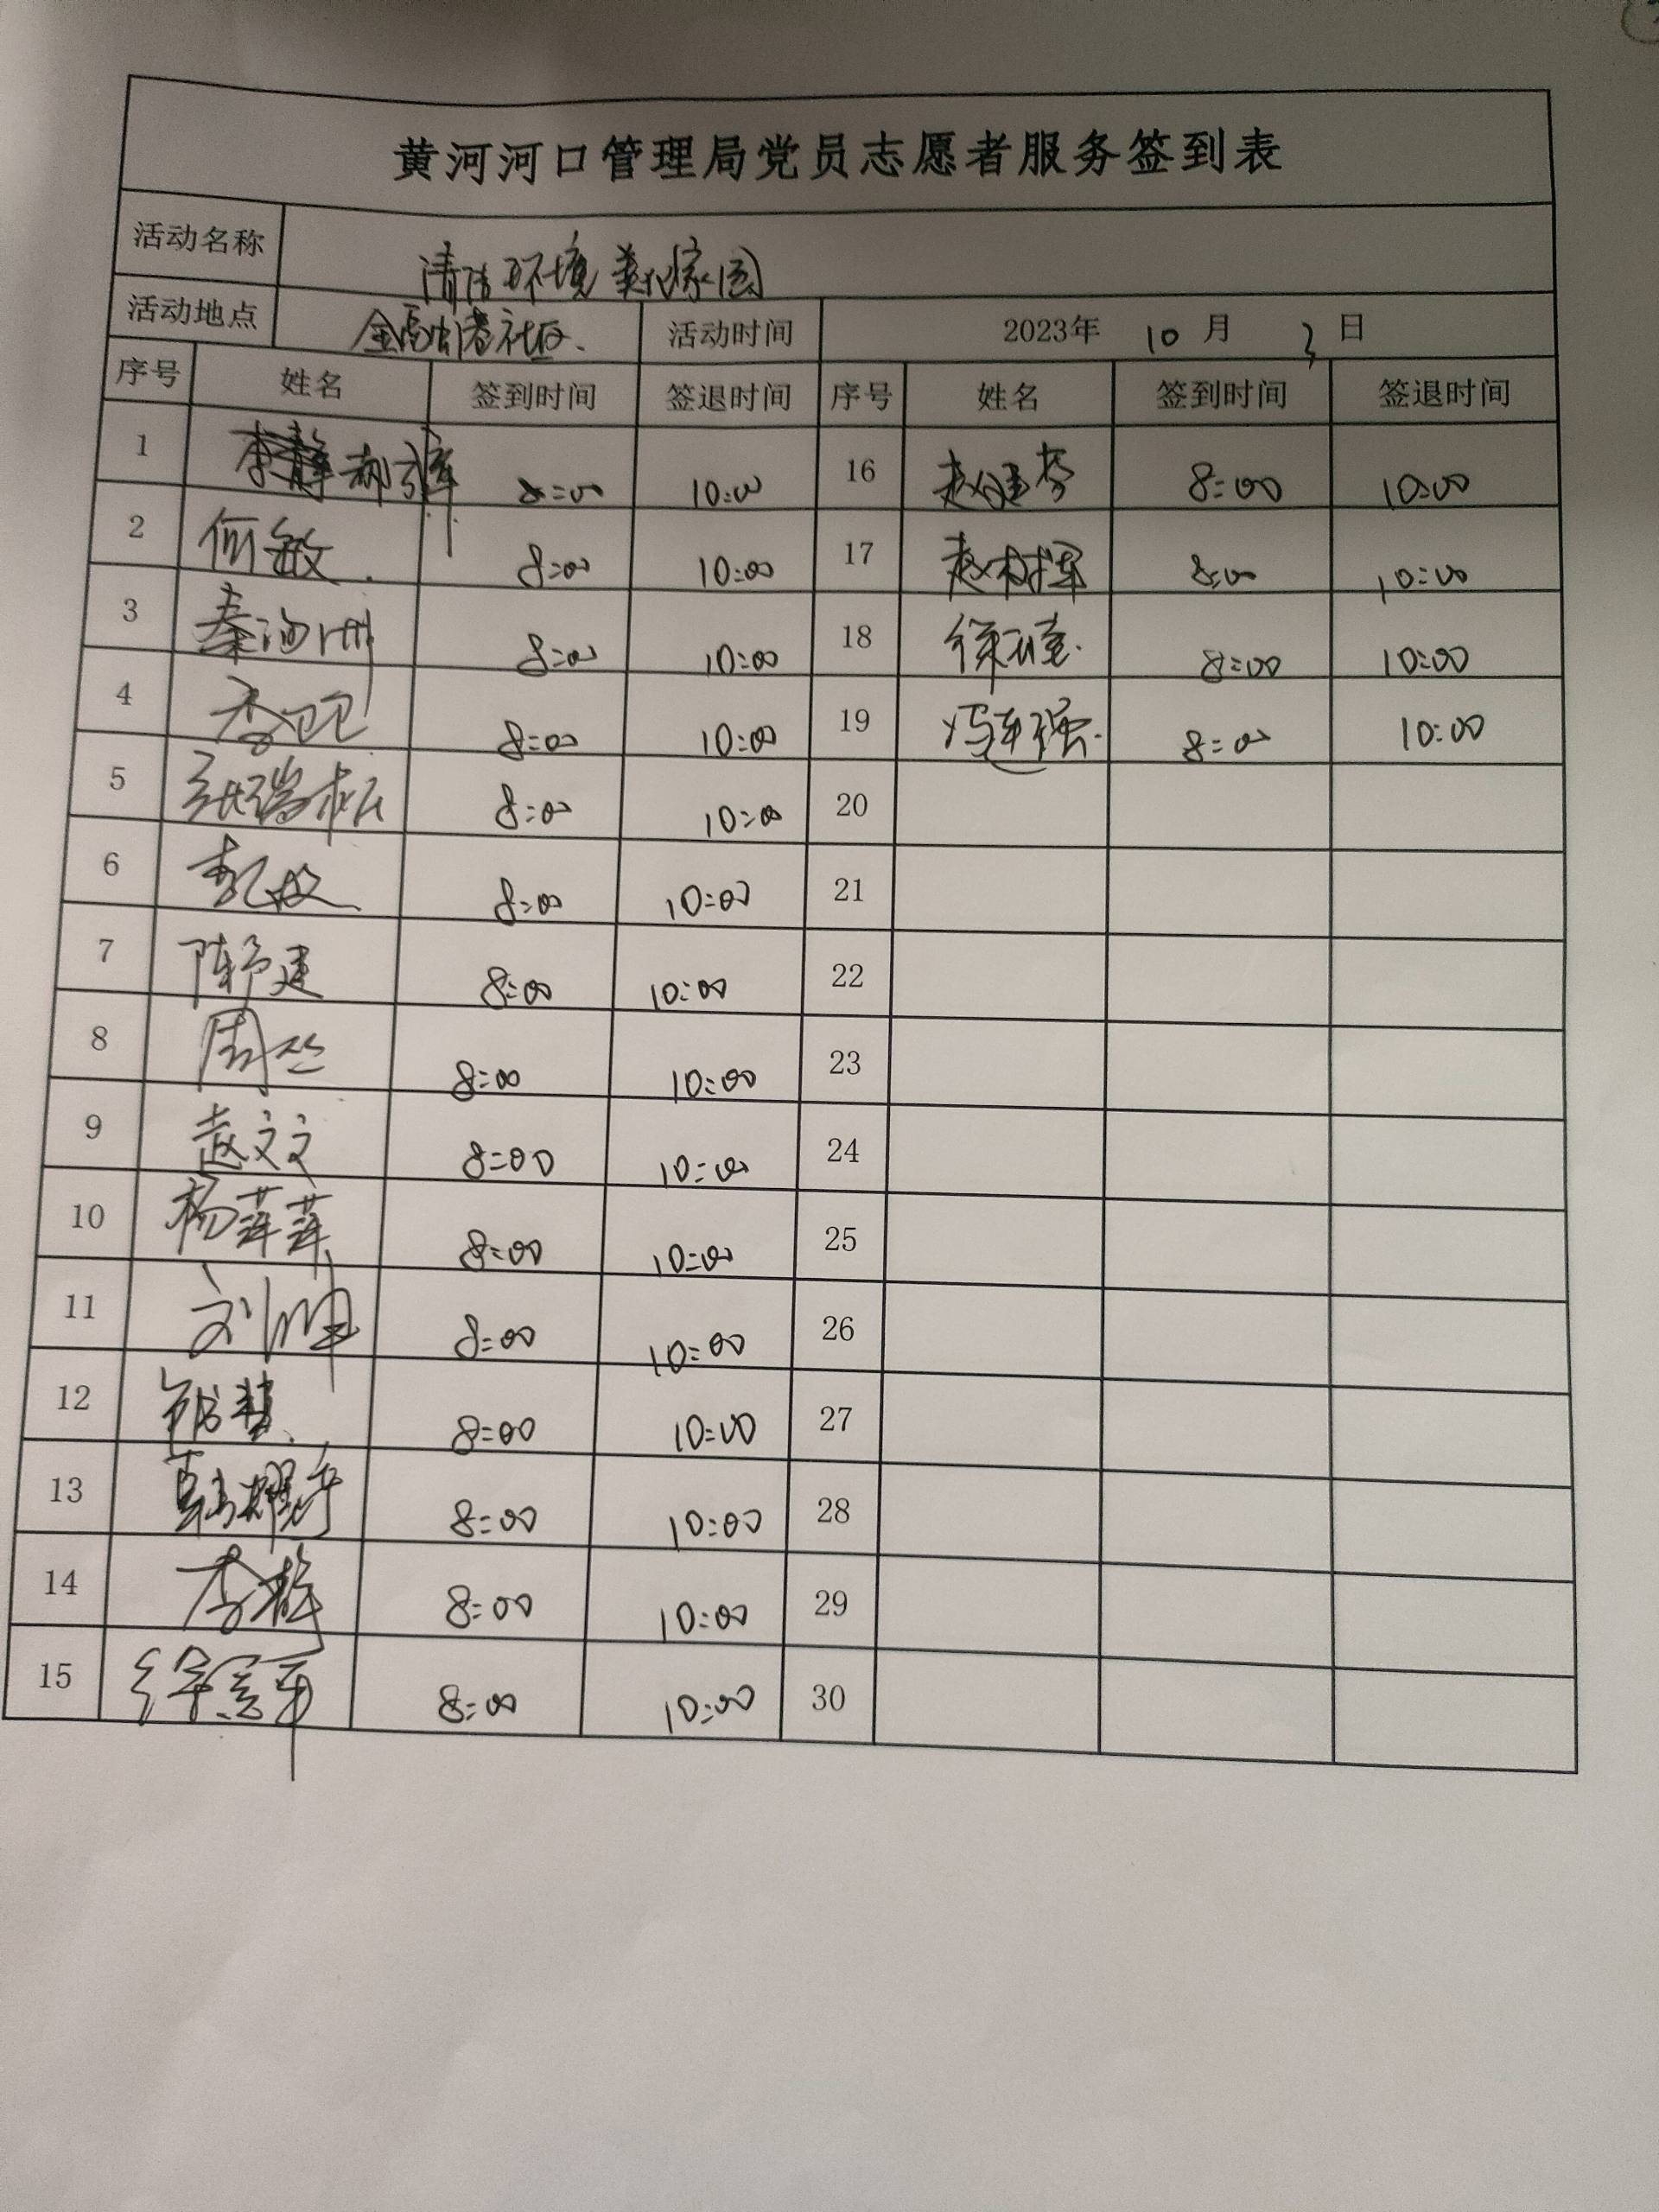 黄河河口管理局党员志愿者服务签到表
活动名称 清洁环境 美化家园
活动地点 社区 活动时间 2023年 10 月 3 日
序号 姓名 签到时间 签退时间 序号 姓名 签到时间 签退时间
1 8:00 10:00 16 8:00 10:00
2 何敏 8:00 10:00 17 8:00 10:00
3 秦 8:00 10:00 18 8:00 10:00
4 李卫卫 8:00 10:00 19 8:00 10:00
5 张瑞松 8:00 10:00 20
6 8:00 10:00 21
7 8:00 10:00 22
8 8:00 10:00 23
9 赵文文 8:00 10:00 24
10 杨萍萍 8:00 10:00 25
11 刘 8:00 10:00 26
12 8:00 10:00 27
13 8:00 10:00 28
14 李梅 8:00 10:00 29
15 8:00 10:00 30